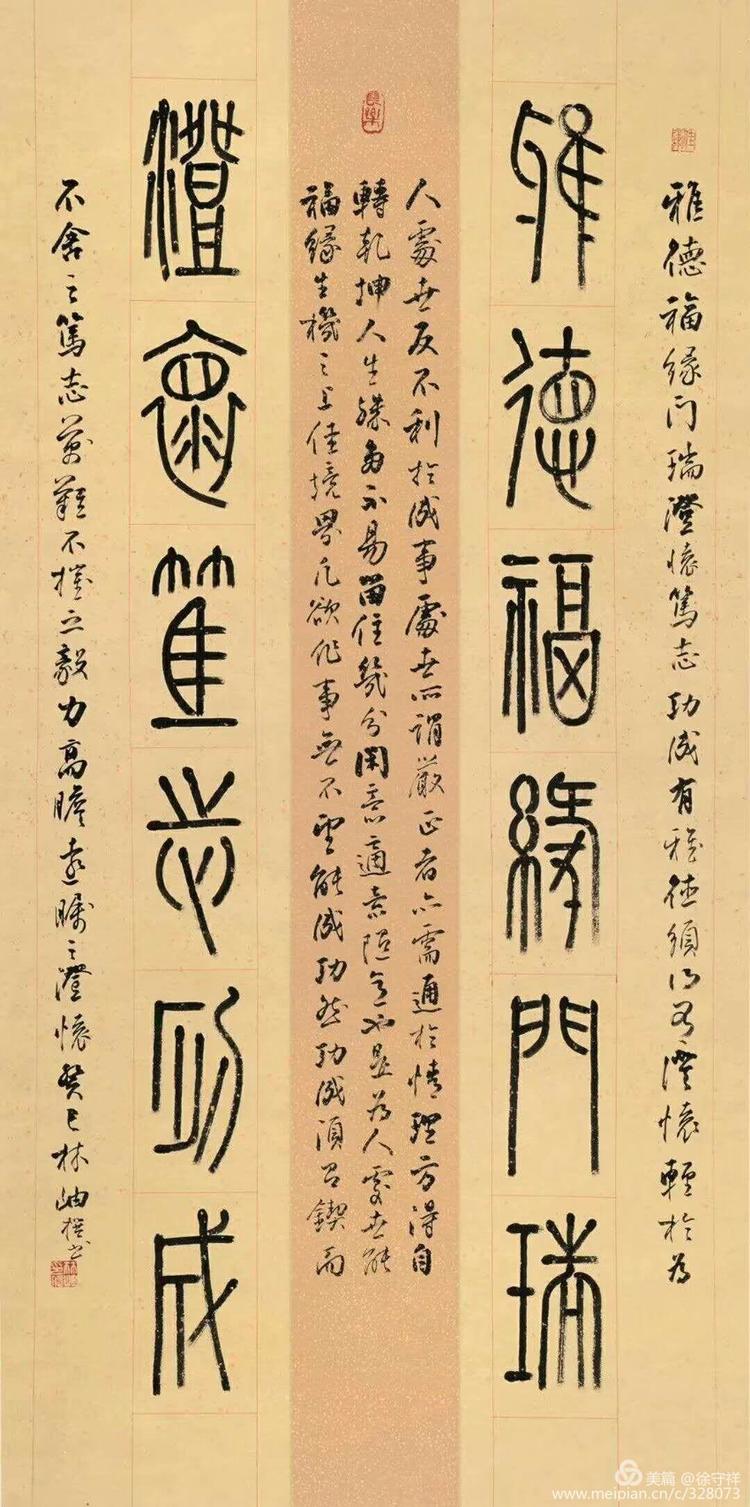 雅德福缘门瑞澄懷篤志功成有雅德須
懷輕於为
雅德福緣門瑞
人處世反不利於成事處世所謂嚴正者亦需通於情理方得自
轉乾坤人生
不易留住幾分閑
適意
人處世能
福緣生機之上佳境界凡欲作事無不望能成功然功成須
鍥而
澄懷篤志功成
不舍之篤志萬難不摧之毅力高瞻遠矚之澄懷癸巳林岫撰書
長樂
美篇 @徐守祥
www.meipian.cn/c/328073